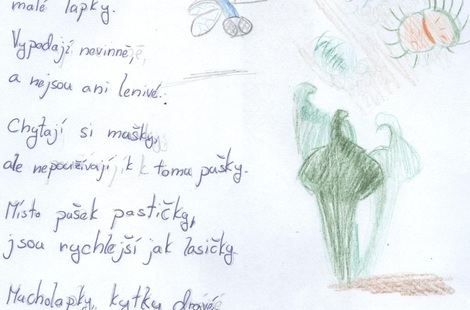 malé lapky.
Vypadají nevinně,
a nejsou ani lenivé.
Chytají si mušky,
ale nepoužívají k tomu pušky.
Místo pušek pastičky,
jsou rychlejší jak lasičky.
Mucholapky, kytky dravé